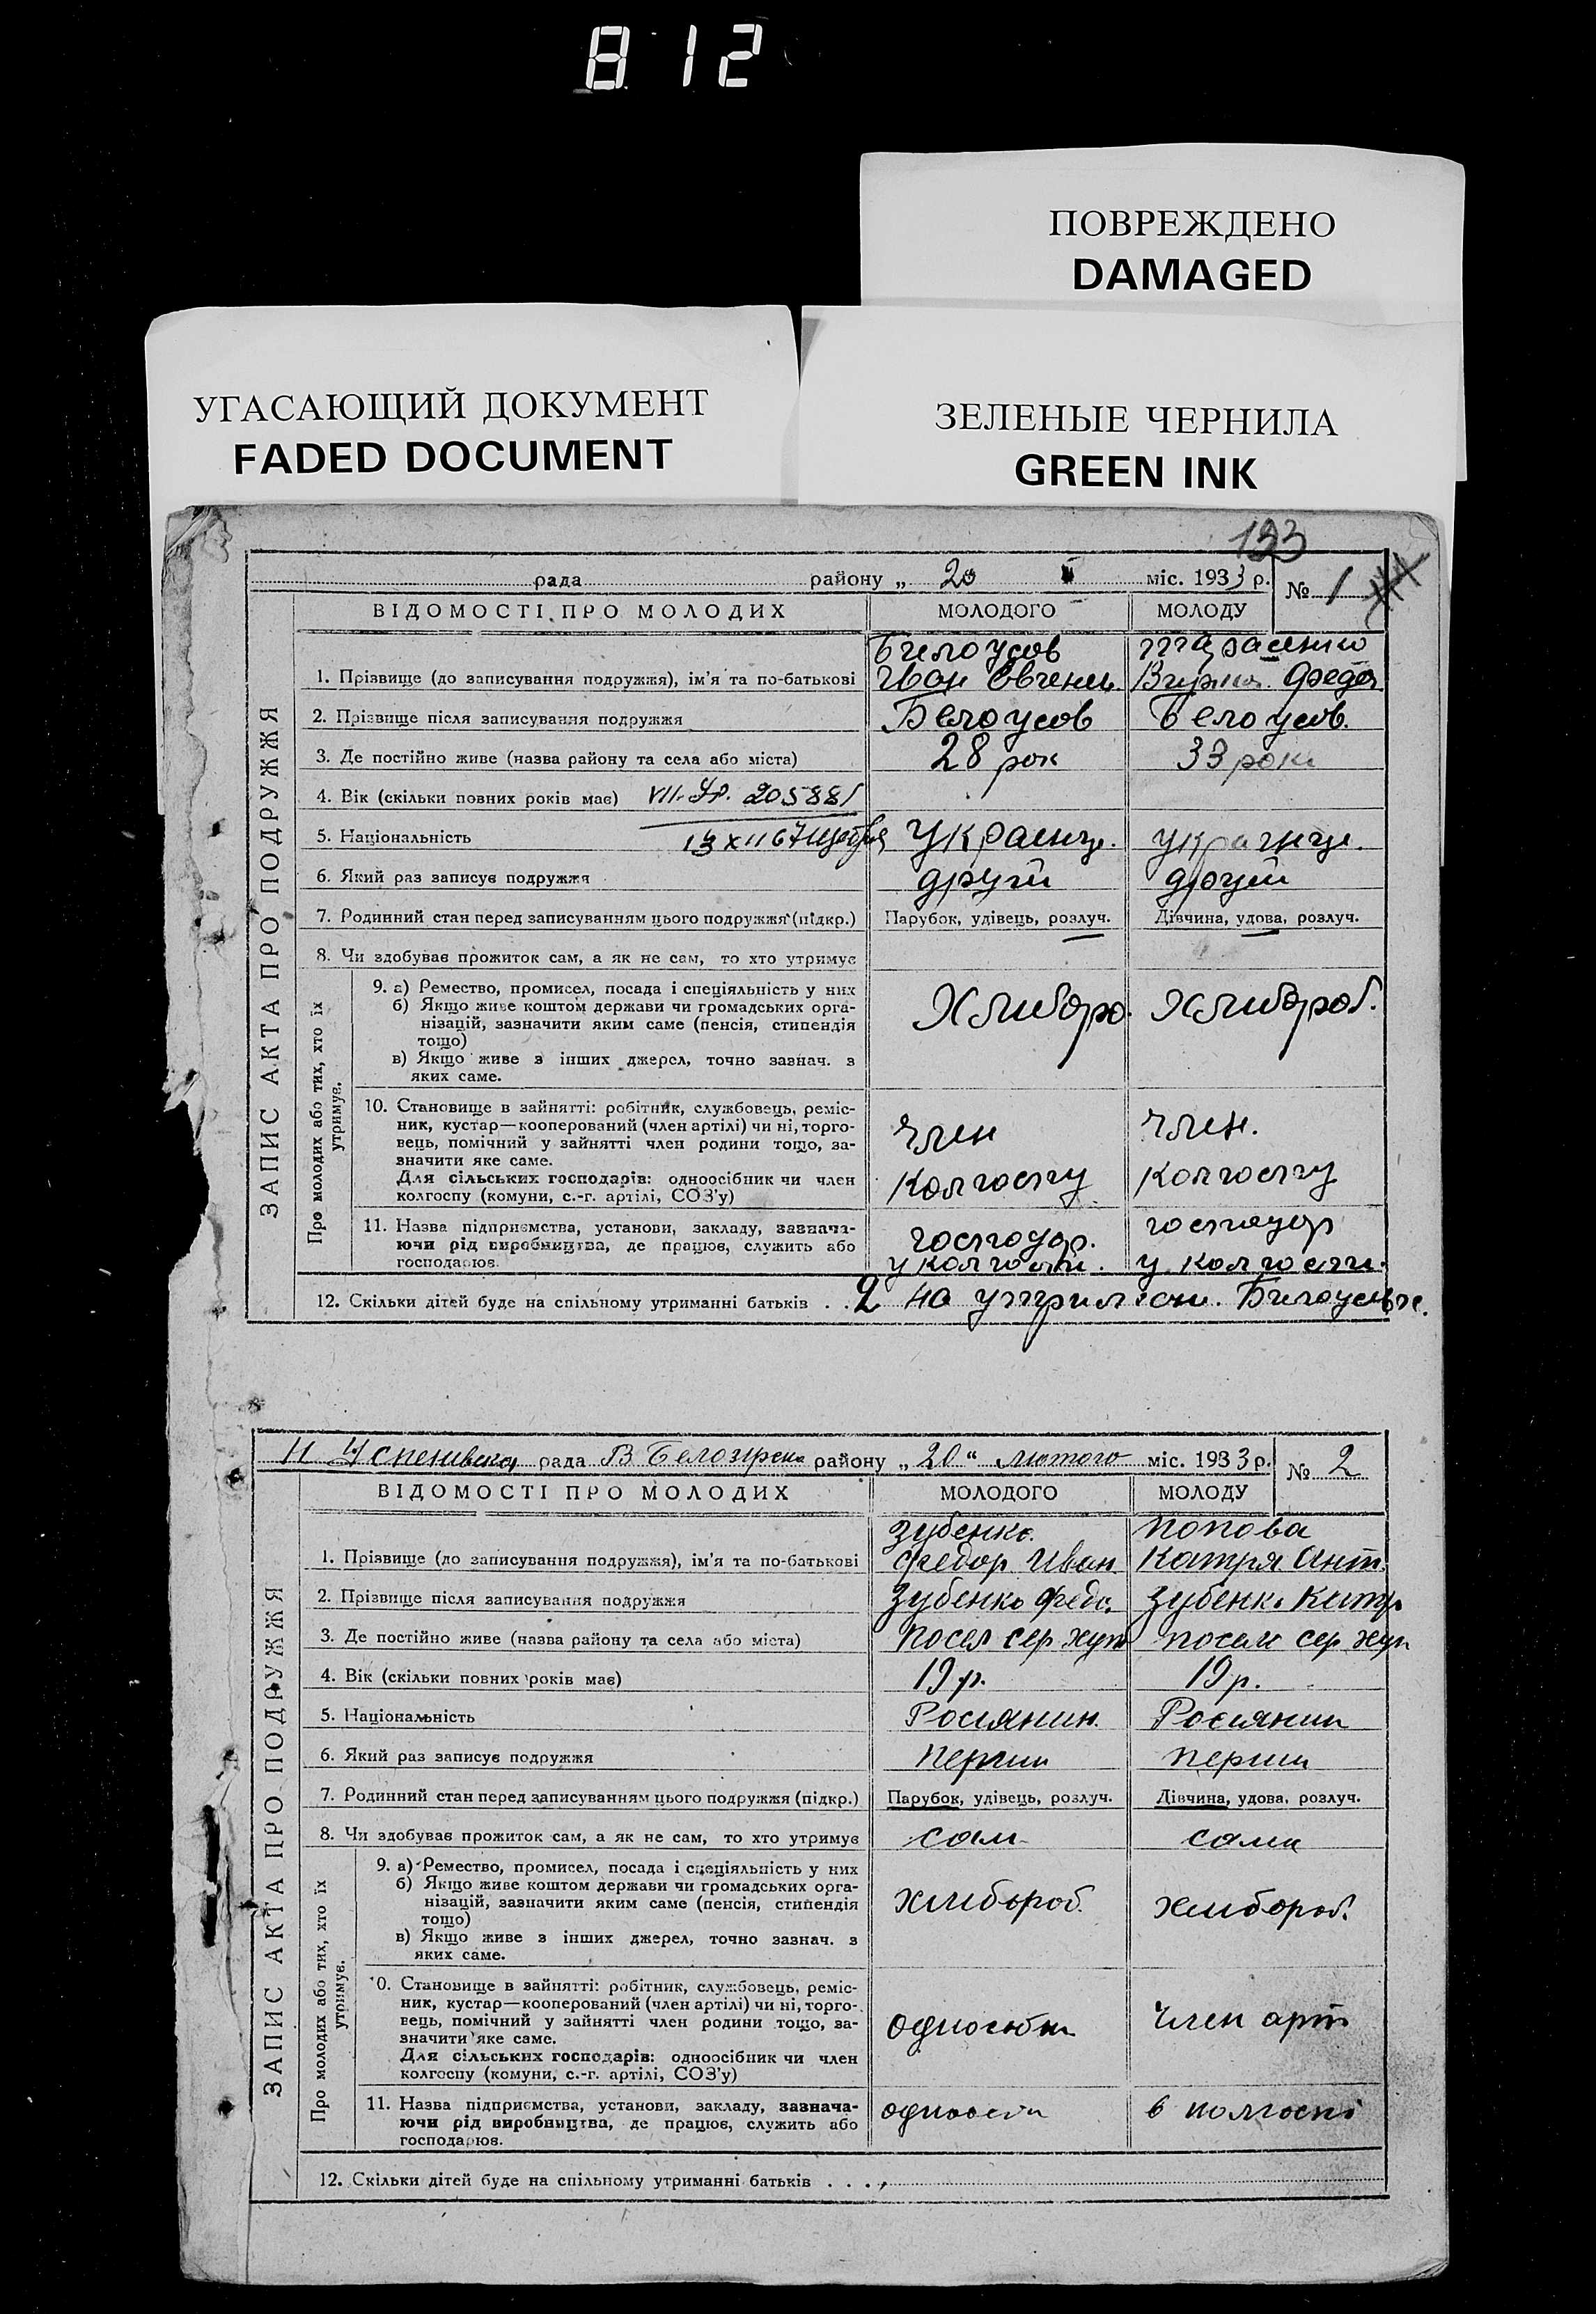 812
ПОВРЕЖДЕНО
DAMAGED
УГАСАЮЩИЙ ДОКУМЕНТ
FADED DOCUMENT
ЗЕЛЕНЫЕ ЧЕРНИЛА
GREEN INK
рада району „ 20 II міс. 1933 р. № 1
ВІДОМОСТІ ПРО МОЛОДИХ МОЛОДОГО МОЛОДУ
ЗАПИС АКТА ПРО ПОДРУЖЖЯ
Билоусов Тарасенко
1. Прізвище (до записування подружжя), ім'я та по-батькові Иван Федо
2. Прізвище після записування подружжя Белоусов Белоусов.
3. Де постійно живе (назва району та села або міста) 28 рок 33 роки
4. Вік (скільки повних років має) 205881
5. Національність Украинц. украинц.
6. Який раз записує подружжя другий другий
7. Родинний стан перед записуванням цього подружжя (підкр.) Парубок, удівець, розлуч. Дівчина, удова, розлуч.
8. Чи здобуває прожиток сам, а як не сам, то хто утримує
Про молодих або тих, хто їх утримує.
9. а) Ремество, промисел, посада і спеціяльність у них Хлиборо. Хлибороб.
б) Якщо живе коштом держави чи громадських орга-
нізацій, зазначити яким саме (пенсія, стипендія
тощо)
в) Якщо живе з інших джерел, точно зазнач. з
яких саме.
10. Становище в зайнятті: робітник, службовець, реміс-
ник, кустар—кооперований (член артілі) чи ні, торго- член член.
вець, помічний у зайнятті член родини тощо, за-
значити яке саме.
Для сільських господарів: одноосібник чи член колгоспу колгоспу
колгоспу (комуни, с.-г. артілі, СОЗ'у)
11. Назва підприємства, установи, закладу, зазнача- господар. господар
ючи рід виробництва, де працює, служить або
господарює. у колгоспи. у колгоспи.
12. Скільки дітей буде на спільному утриманні батьків . . 2 на
Н Успенивска рада В Белозирска району „ 20 “ лютого міс. 1933 р. № 2
ВІДОМОСТІ ПРО МОЛОДИХ МОЛОДОГО МОЛОДУ
ЗАПИС АКТА ПРО ПОДРУЖЖЯ
Зубенко. Попова
1. Прізвище (до записування подружжя), ім'я та по-батькові Федор Иван Катря Ант.
2. Прізвище після записування подружжя Зубенко Федо. Зубенко Катр
3. Де постійно живе (назва району та села або міста) посел сер хут посел сер хут
4. Вік (скільки повних років має) 19 р. 19 р.
5. Національність Росиянин. Росиянин
6. Який раз записує подружжя перши перши
7. Родинний стан перед записуванням цього подружжя (підкр.) Парубок, удівець, розлуч. Дівчина, удова, розлуч.
8. Чи здобуває прожиток сам, а як не сам, то хто утримує сам сама
Про молодих або тих, хто їх утримує.
9. а) Ремество, промисел, посада і спеціяльність у них
б) Якщо живе коштом держави чи громадських орга- хлибороб. хлибороб.
нізацій, зазначити яким саме (пенсія, стипендія
тощо)
в) Якщо живе з інших джерел, точно зазнач. з
яких саме.
0. Становище в зайнятті: робітник, службовець, реміс-
ник, кустар—кооперований (член артілі) чи ні, торго-
вець, помічний у зайнятті член родини тощо, за- член арт
значити яке саме.
Для сільських господарів: одноосібник чи член
колгоспу (комуни, с.-г. артілі, СОЗ'у)
11. Назва підприємства, установи, закладу, зазнача- в колгоспі
ючи рід виробництва, де працює, служить або
господарює.
12. Скільки дітей буде на спільному утриманні батьків . . .